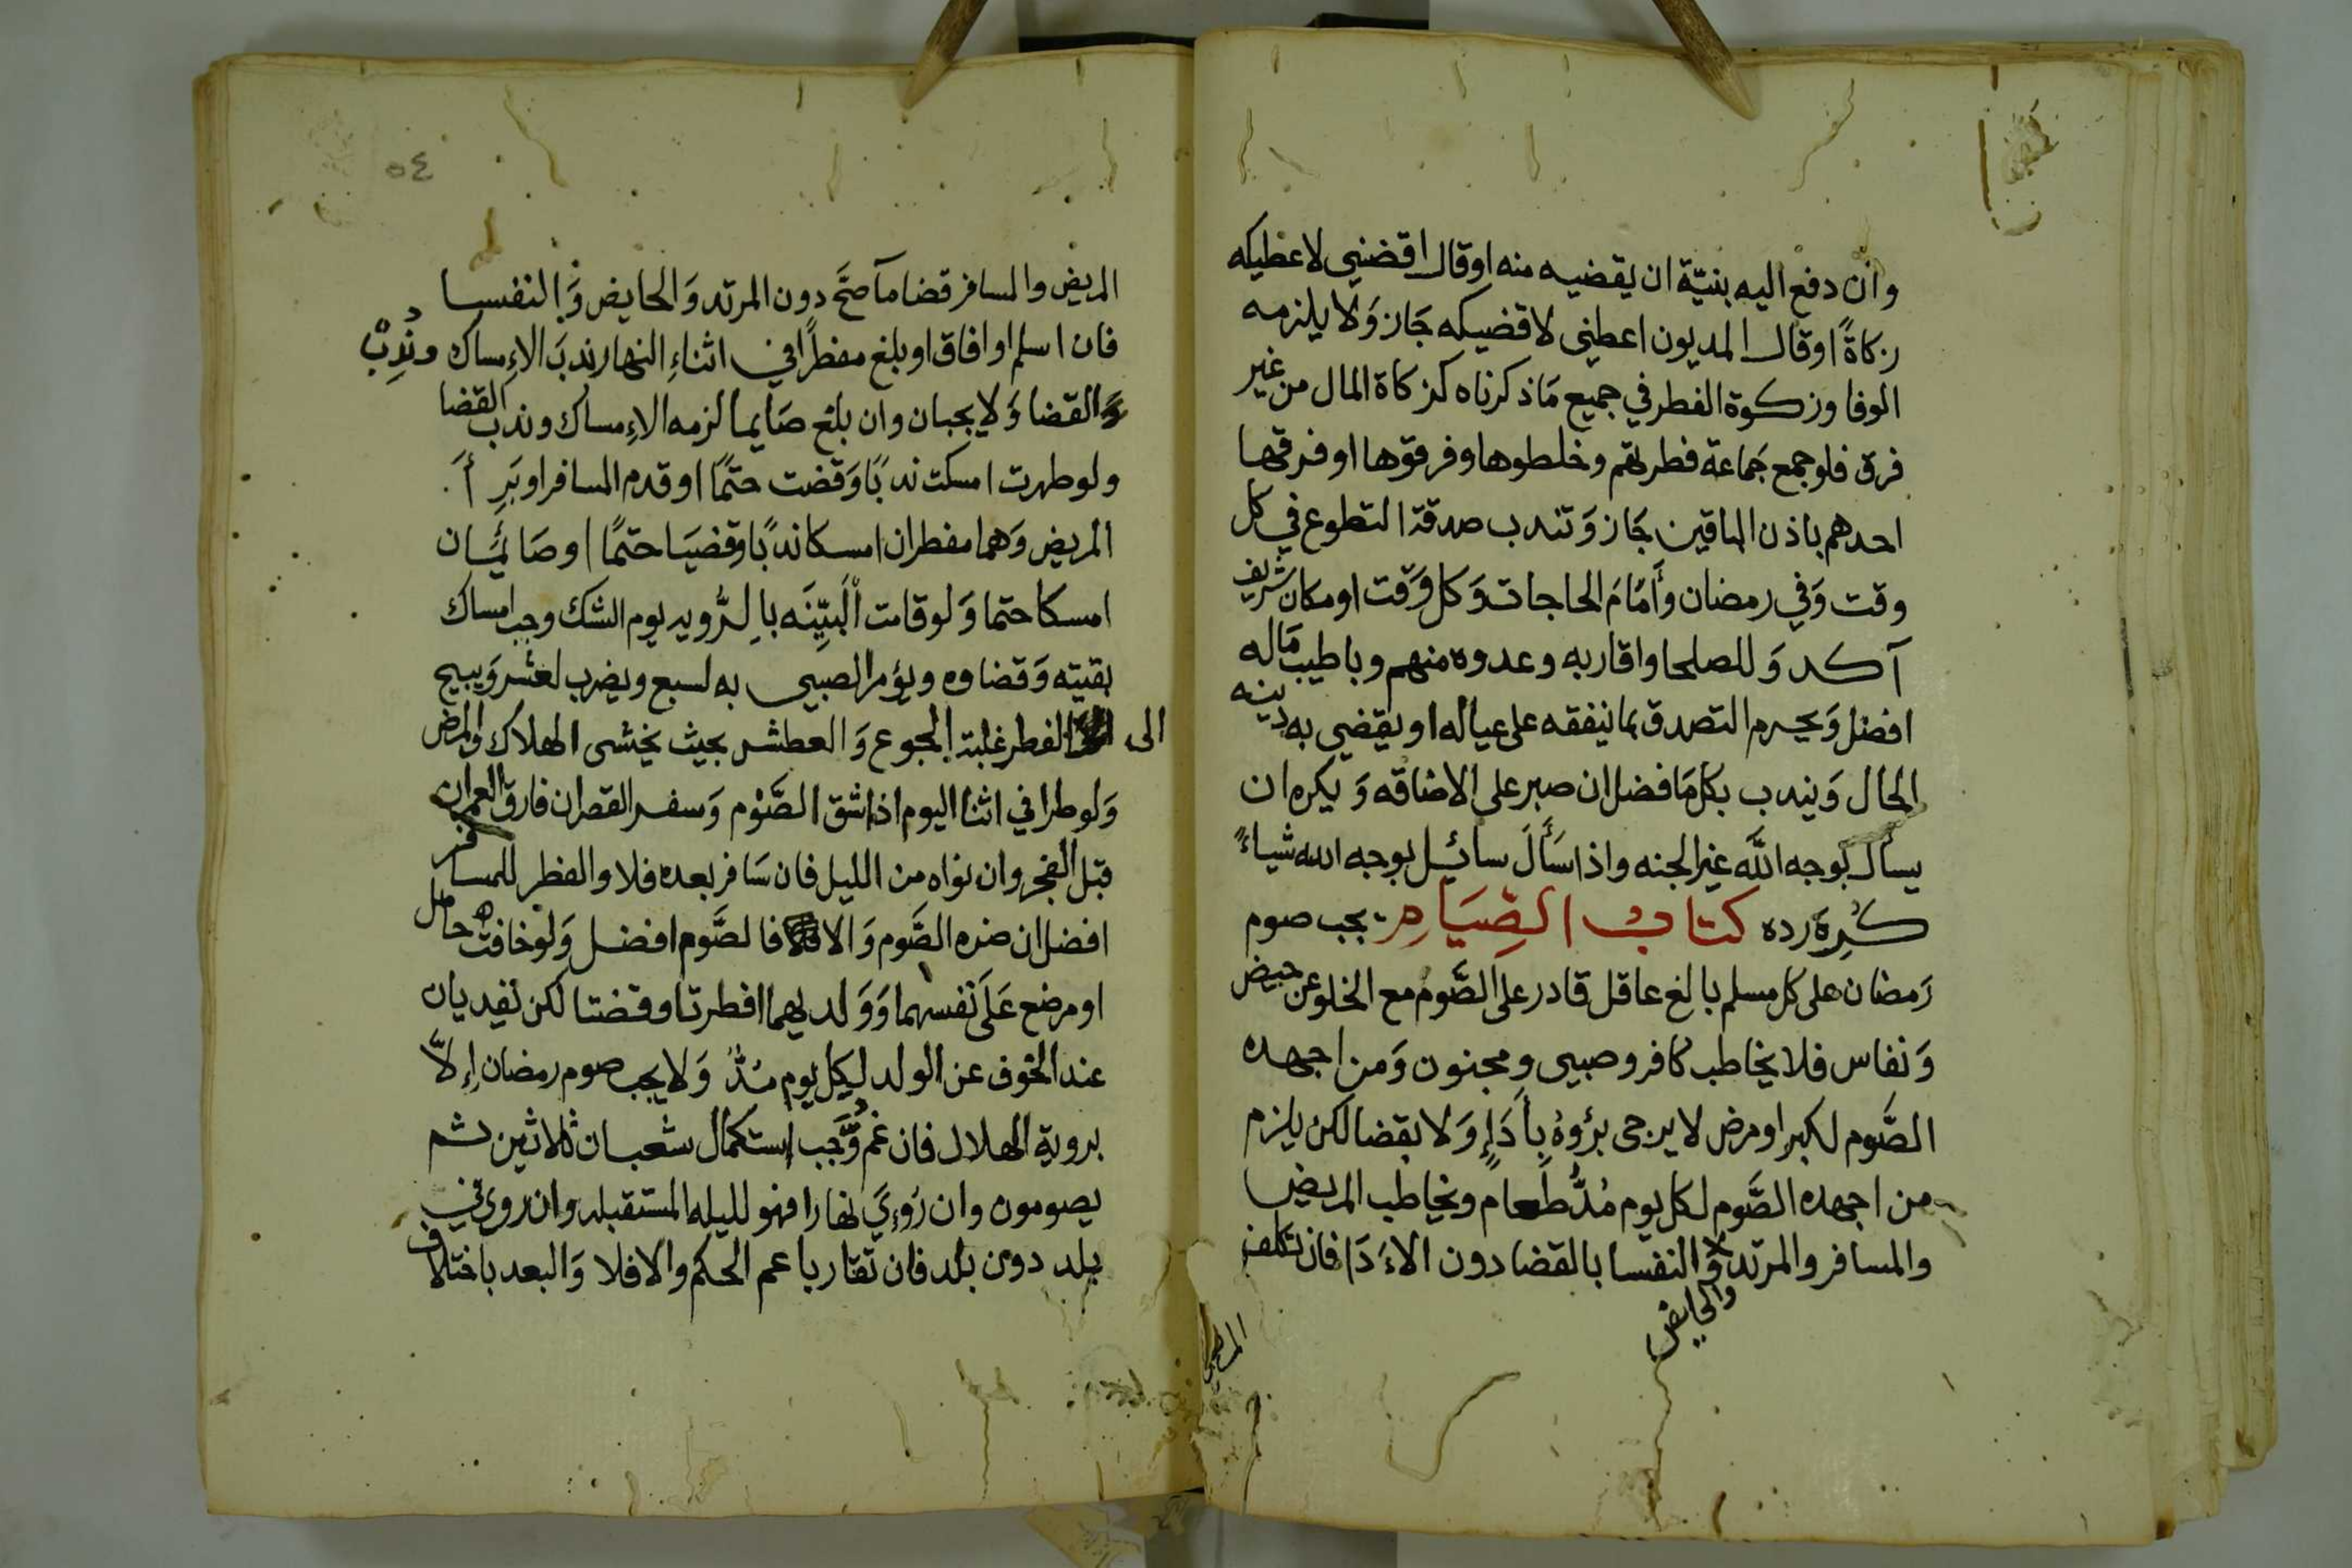 وان دفع اليه بنيّة ان يقضيه منه اوقال اقضني لاعطيكه
زكاةً اوقال المديون اعطني لاقضيكه جَاز وَلا يلزمه
الوفا وزكوة الفطر في جميع مَاذكرناه كزكاة المال من غير
فرق فلوجمع جَماعة فطرتهم وخلطوها وفرقوها اوفرقها
احدهم باذن الباقين جَاز وَتندب صدقة التطوع في كل
وقت وَفي رمضان وأَمَامَ الحاجات وَكل وَقت اومكان شريف
آكد وَللصلحا واقاربه وعدوه منهم وباطيب مَاله
افضل وَيحرم التصدق بما ينفقه على عياله او يقضي به دينه
الحال وَيندب بكل مَافضل ان صبر على الاضاقه وَيكره ان
يسأل بوجه اللَّه غير الجنه واذا سَأَلَ سائيل بوجه الله شياءً
كُرِهَ رده كتاب الصِّيَامِ يجب صوم
رَمضان على كل مسلم بالغ عاقل قادر على الصَّوم مع الخلو عن حيض
وَنفاس فلا يخاطب كافر وصبيى ومجنون وَمن اجهده
الصَّوم لكبر اومرض لا يرجى برؤوهُ بِأَدَإٍ وَلا بقضا لكن يلزم
من اجهده الصَّوم لكل يوم مُدُّ طَعام ويخاطب المريض
والمسافر والمرتد وَالنفسا بالقضا دون الاءَدَا فان تكلف
والحايض
المريض
٥٤
المريض والمسافر قضامآ صحَّ دون المرتد وَالحايض وَالنفسا
فان اسلم اوافاق اوبلغ مفطرًا في اثناءِ النهار ندبَ الاءِمساك وندِبَ
وَالقضا وَلا يجبان وان بلغ صَايما لزمه الاءِمساك وندب القضا
ولوطهرت امسكت ندبًا وَقضت حتمًا اوقدم المسافر اوبَرِأَ
المريض وَهما مفطران امسكا ندبًا وقضيَا حتمًا اوصَائمَان
امسكا حتما وَلوقامت ألبيِّنَه بالرُّويه يوم الشك وجب امساك
بقيته وَقضاوه ويؤمر الصبيى به لسبع ويضرب لعشر وَيبيح
الى الفطر غلبة الجوع وَالعطش بحيث يخشى الهلاك والمرض
وَلوطرا في اثنا اليوم اذا شق الصَّوْم وَسفر القصر ان فارق العمران
قبل الفجر وان نواه من الليل فان سَافر بعده فلا والفطر للمسافر
افضل ان ضره الصَّوم وَالا فالصَّوم افضل وَلوخافت حامل
اومرضع عَلى نفسهما وَوَلديهما افطرتا وقضتا لكن تفديان
عند الخوف عن الولد ليكل يوم مُدُّ وَلا يجب صوم رمضان إِلاَّ
بروية الهلال فان غم وَّجب إستكمال شعبان ثلاثين ثم
يصومون وان رُوِيَ نهارا فهو لليله المستقبله وان روي في
بلد دون بلد فان تقاربا عم الحكم والا فلا وَالبعد باختلاف